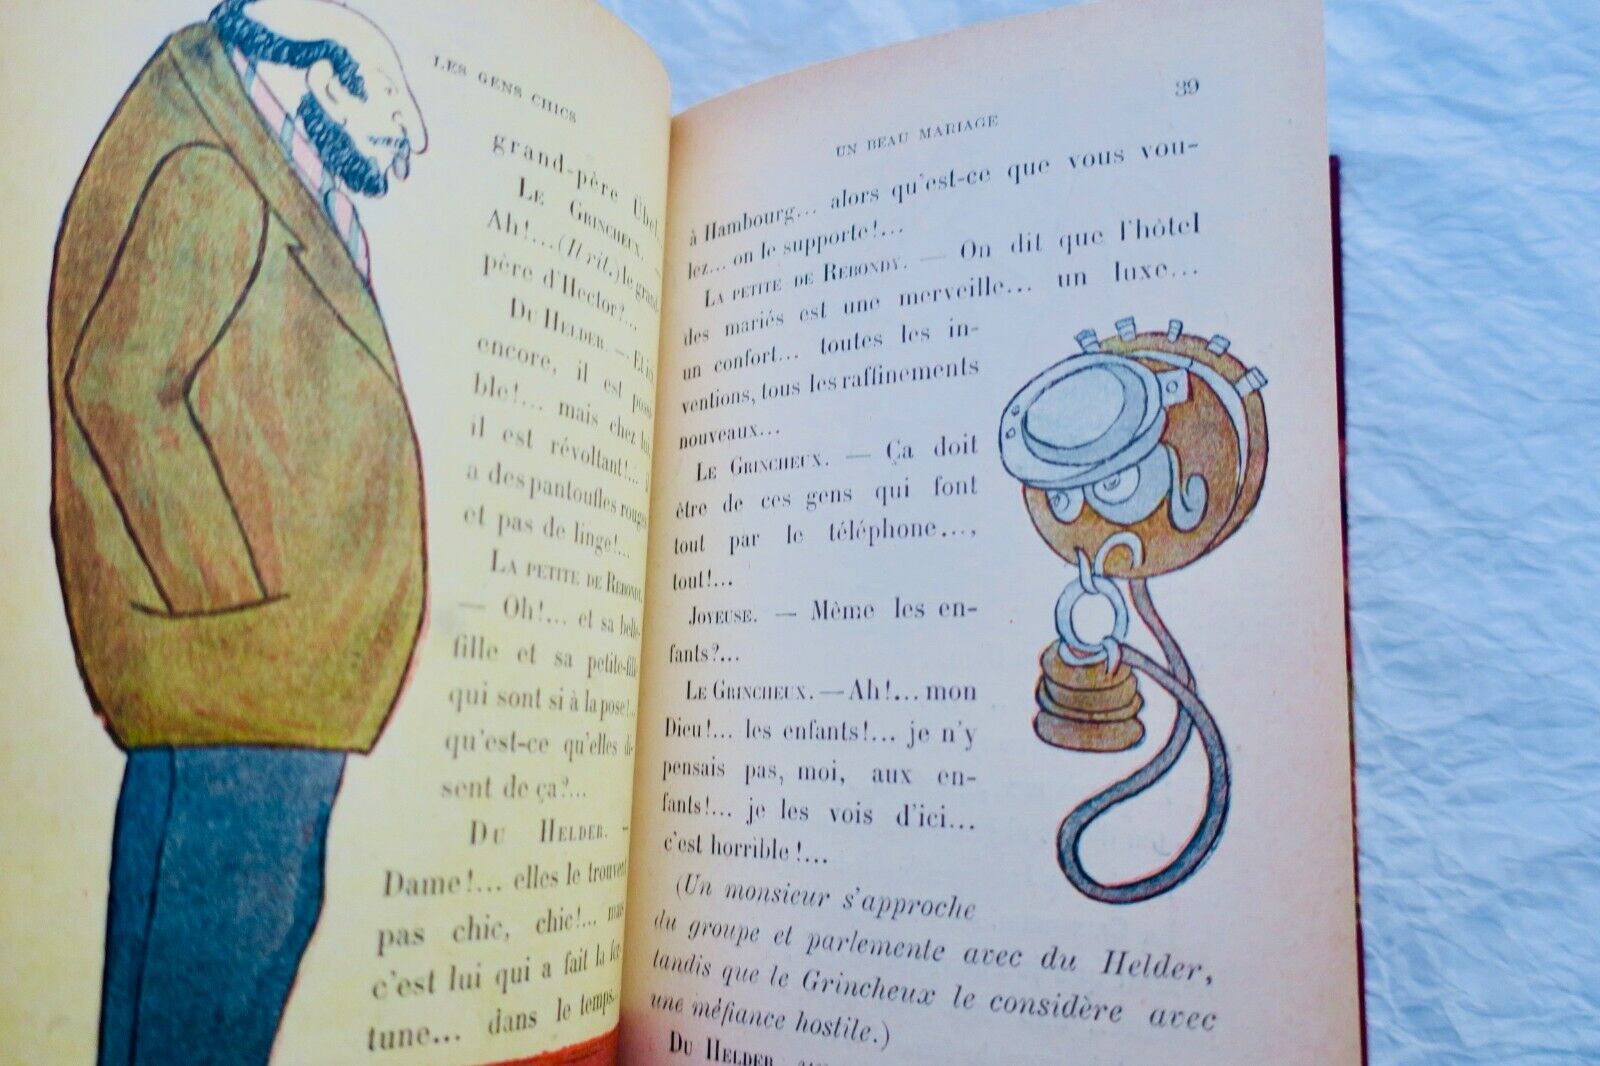 LES GENS CHICS
grand-père Ubel...
LE GRINCHEUX. —
Ah!...(Il rit.) le grand-
père d'Hector?...
DU HELDER. — Et ici,
encore, il est possi-
ble!... mais chez lui,
il est révoltant!... il
a des pantoufles rouges
et pas de linge!...
LA PETITE DE REBONDY.
— Oh!... et sa belle-
fille et sa petite-fille
qui sont si à la pose!...
qu'est-ce qu'elles di-
sent de ça?...
DU HELDER. —
Dame!... elles le trouvent
pas chic, chic!... mais
c'est lui qui a fait la for-
tune... dans le temps...
39
UN BEAU MARIAGE
à Hambourg... alors qu'est-ce que vous vou-
lez... on le supporte!...
LA PETITE DE REBONDY. — On dit que l'hôtel
des mariés est une merveille... un luxe...
un confort... toutes les in-
ventions, tous les raffinements
nouveaux...
LE GRINCHEUX. — Ça doit
être de ces gens qui font
tout par le téléphone...,
tout!...
JOYEUSE. — Même les en-
fants?...
LE GRINCHEUX. — Ah!... mon
Dieu!... les enfants!... je n'y
pensais pas, moi, aux en-
fants!... je les vois d'ici...
c'est horrible!...
(Un monsieur s'approche
du groupe et parlemente avec du Helder,
tandis que le Grincheux le considère avec
une méfiance hostile.)
DU HELDER